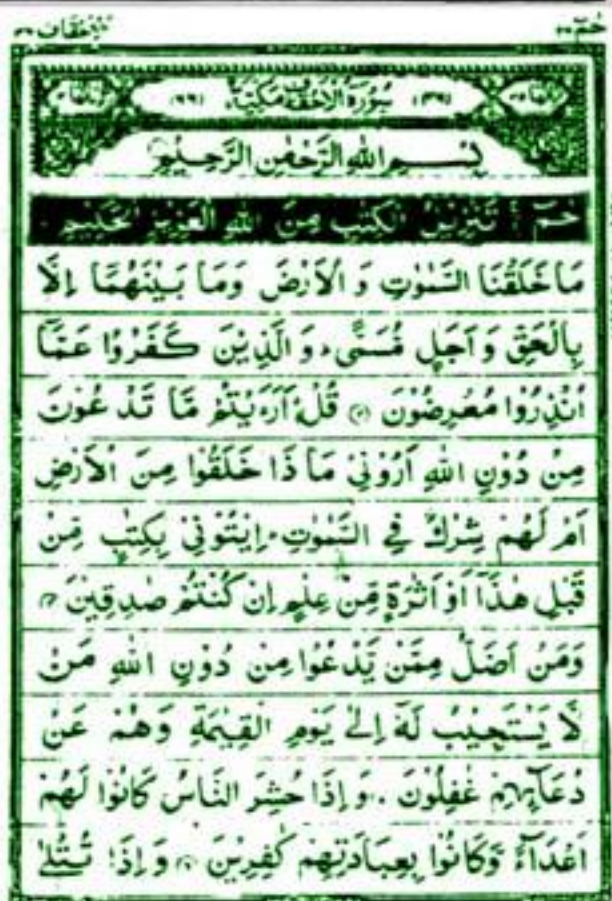 حٰمٓ ٢٦
الاحقاف ٤٦
سُوْرَةُ الْاَحْقَافِ مَكِّيَّةٌ
بِسْمِ اللّٰهِ الرَّحْمٰنِ الرَّحِيْمِ
حٰمٓ تَنْزِيْلُ الْكِتٰبِ مِنَ اللّٰهِ الْعَزِيْزِ الْحَكِيْمِ
مَا خَلَقْنَا السَّمٰوٰتِ وَ الْاَرْضَ وَمَا بَيْنَهُمَا اِلَّا
بِالْحَقِّ وَ اَجَلٍ مُّسَمًّى وَ الَّذِيْنَ كَفَرُوْا عَمَّا
اُنْذِرُوْا مُعْرِضُوْنَ ۝ قُلْ اَرَءَيْتُمْ مَّا تَدْعُوْنَ
مِنْ دُوْنِ اللّٰهِ اَرُوْنِيْ مَا ذَا خَلَقُوْا مِنَ الْاَرْضِ
اَمْ لَهُمْ شِرْكٌ فِي السَّمٰوٰتِ اِيْتُوْنِيْ بِكِتٰبٍ مِّنْ
قَبْلِ هٰذَآ اَوْ اَثٰرَةٍ مِّنْ عِلْمٍ اِنْ كُنْتُمْ صٰدِقِيْنَ
وَمَنْ اَضَلُّ مِمَّنْ يَّدْعُوْا مِنْ دُوْنِ اللّٰهِ مَنْ
لَّا يَسْتَجِيْبُ لَهٗٓ اِلٰى يَوْمِ الْقِيٰمَةِ وَهُمْ عَنْ
دُعَآئِهِمْ غٰفِلُوْنَ وَ اِذَا حُشِرَ النَّاسُ كَانُوْا لَهُمْ
اَعْدَآءً وَّكَانُوْا بِعِبَادَتِهِمْ كٰفِرِيْنَ وَ اِذَا تُتْلٰى